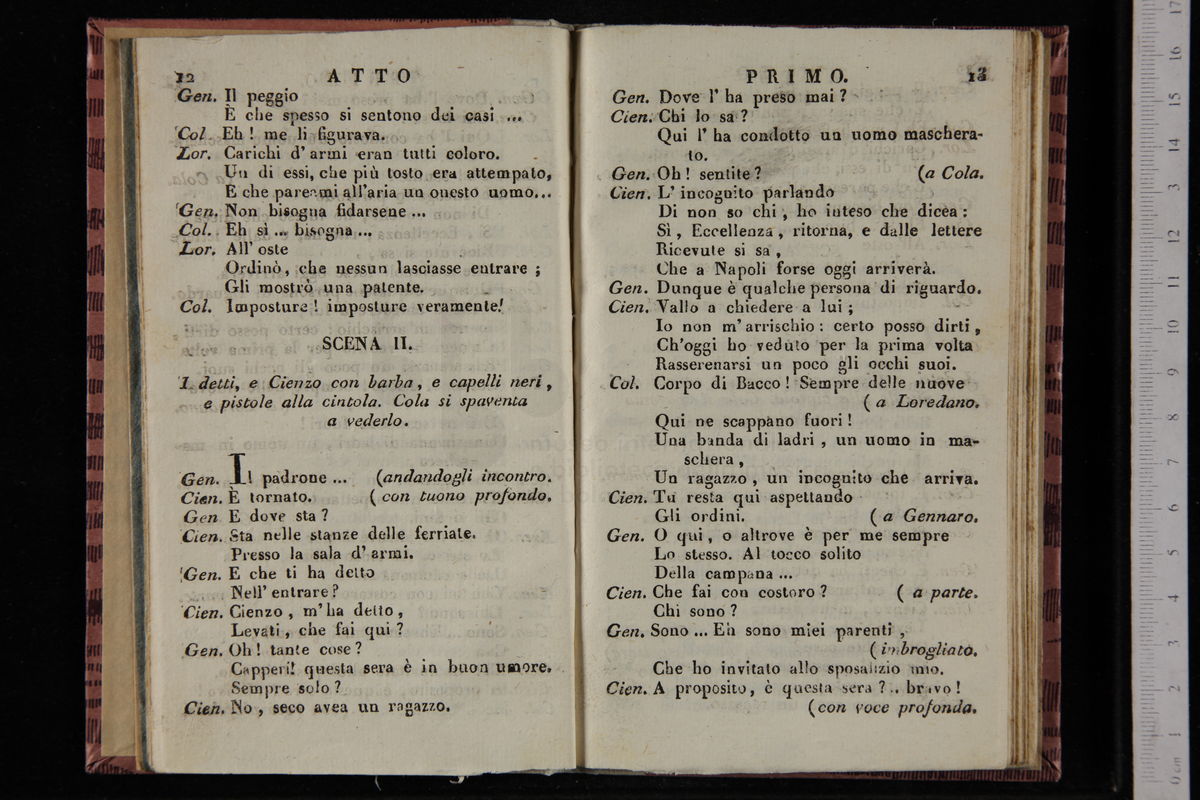 12 ATTO
Gen. Il peggio
È che spesso si sentono dei casi ...
Col. Eh ! me li figurava.
Lor. Carichi d' armi eran tutti coloro.
Un di essi, che più tosto era attempato,
E che pareami all'aria un onesto uomo...
Gen. Non bisogna fidarsene ...
Col. Eh sì ... bisogna ...
Lor. All' oste
Ordinò, che nessun lasciasse entrare ;
Gli mostrò una patente.
Col. Imposture ! imposture veramente!
SCENA II.
I detti, e Cienzo con barba, e capelli neri,
e pistole alla cintola. Cola si spaventa
a vederlo.
Gen. Il padrone ... (andandogli incontro.
Cien. È tornato. ( con tuono profondo.
Gen E dove sta ?
Cien. Sta nelle stanze delle ferriate.
Presso la sala d' armi.
Gen. E che ti ha detto
Nell' entrare ?
Cien. Cienzo , m' ha detto ,
Levati , che fai qui ?
Gen. Oh ! tante cose ?
Capperi! questa sera è in buon umore.
Sempre solo ?
Cien. No , seco avea un ragazzo.
PRIMO. 13
Gen. Dove l' ha preso mai ?
Cien. Chi lo sa ?
Qui l' ha condotto un uomo maschera-
to.
Gen. Oh ! sentite ? (a Cola.
Cien. L' incognito parlando
Di non so chi , ho inteso che dicea :
Sì , Eccellenza , ritorna, e dalle lettere
Ricevute si sa ,
Che a Napoli forse oggi arriverà.
Gen. Dunque è qualche persona di riguardo.
Cien. Vallo a chiedere a lui ;
Io non m' arrischio : certo posso dirti ,
Ch'oggi ho veduto per la prima volta
Rasserenarsi un poco gli occhi suoi.
Col. Corpo di Bacco ! Sempre delle nuove
( a Loredano.
Qui ne scappano fuori !
Una banda di ladri , un uomo in ma-
schera ,
Un ragazzo , un incognito che arriva.
Cien. Tu resta qui aspettando
Gli ordini. ( a Gennaro.
Gen. O qui , o altrove è per me sempre
Lo stesso. Al tocco solito
Della campana ...
Cien. Che fai con costoro ? ( a parte.
Chi sono ?
Gen. Sono ... Eh sono miei parenti ,
( imbrogliato.
Che ho invitato allo sposalizio mio.
Cien. A proposito, è questa sera ? .. bravo !
(con voce profonda.